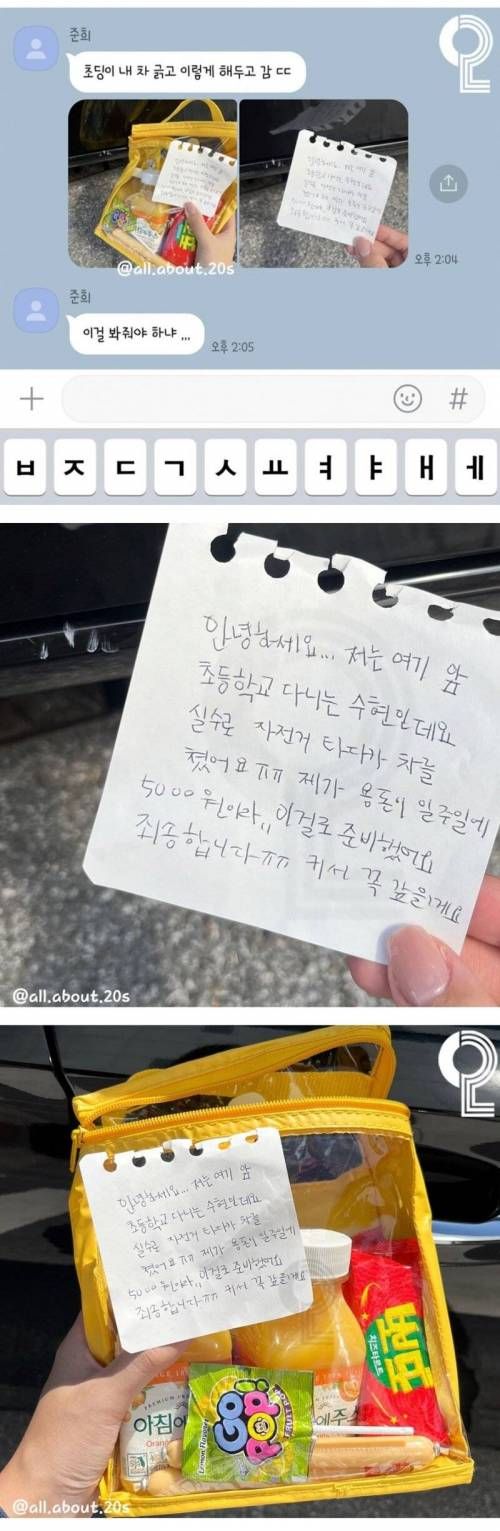 준희
초딩이 내 차 긁고 이렇게 해두고 감 ㄷㄷ
@all.about.20s
오후 2:04
준희
이걸 봐줘야 하냐 ,,,
오후 2:05
#
ㅂ ㅈ ㄷ ㄱ ㅅ ㅛ ㅕ ㅑ ㅐ ㅔ
안녕하세요... 저는 여기 앞
초등학교 다니는 수현인데요
실수로 자전거 타다가 차를
쳤어요ㅠㅠ 제가 용돈이 일주일에
5000원이라,, 이걸로 준비했어요
죄송합니다ㅠㅠ 커서 꼭 갚을게요
@all.about.20s
안녕하세요... 저는 여기 앞
초등학교 다니는 수현인데요
실수로 자전거 타다가 차를
쳤어요ㅠㅠ 제가 용돈이 일주일에
5000원이라,, 이걸로 준비했어요
죄송합니다ㅠㅠ 커서 꼭 갚을게요
아침에
Orange
에주스
GO!
POP!
Lemon Flavour
치즈타르트
@all.about.20s